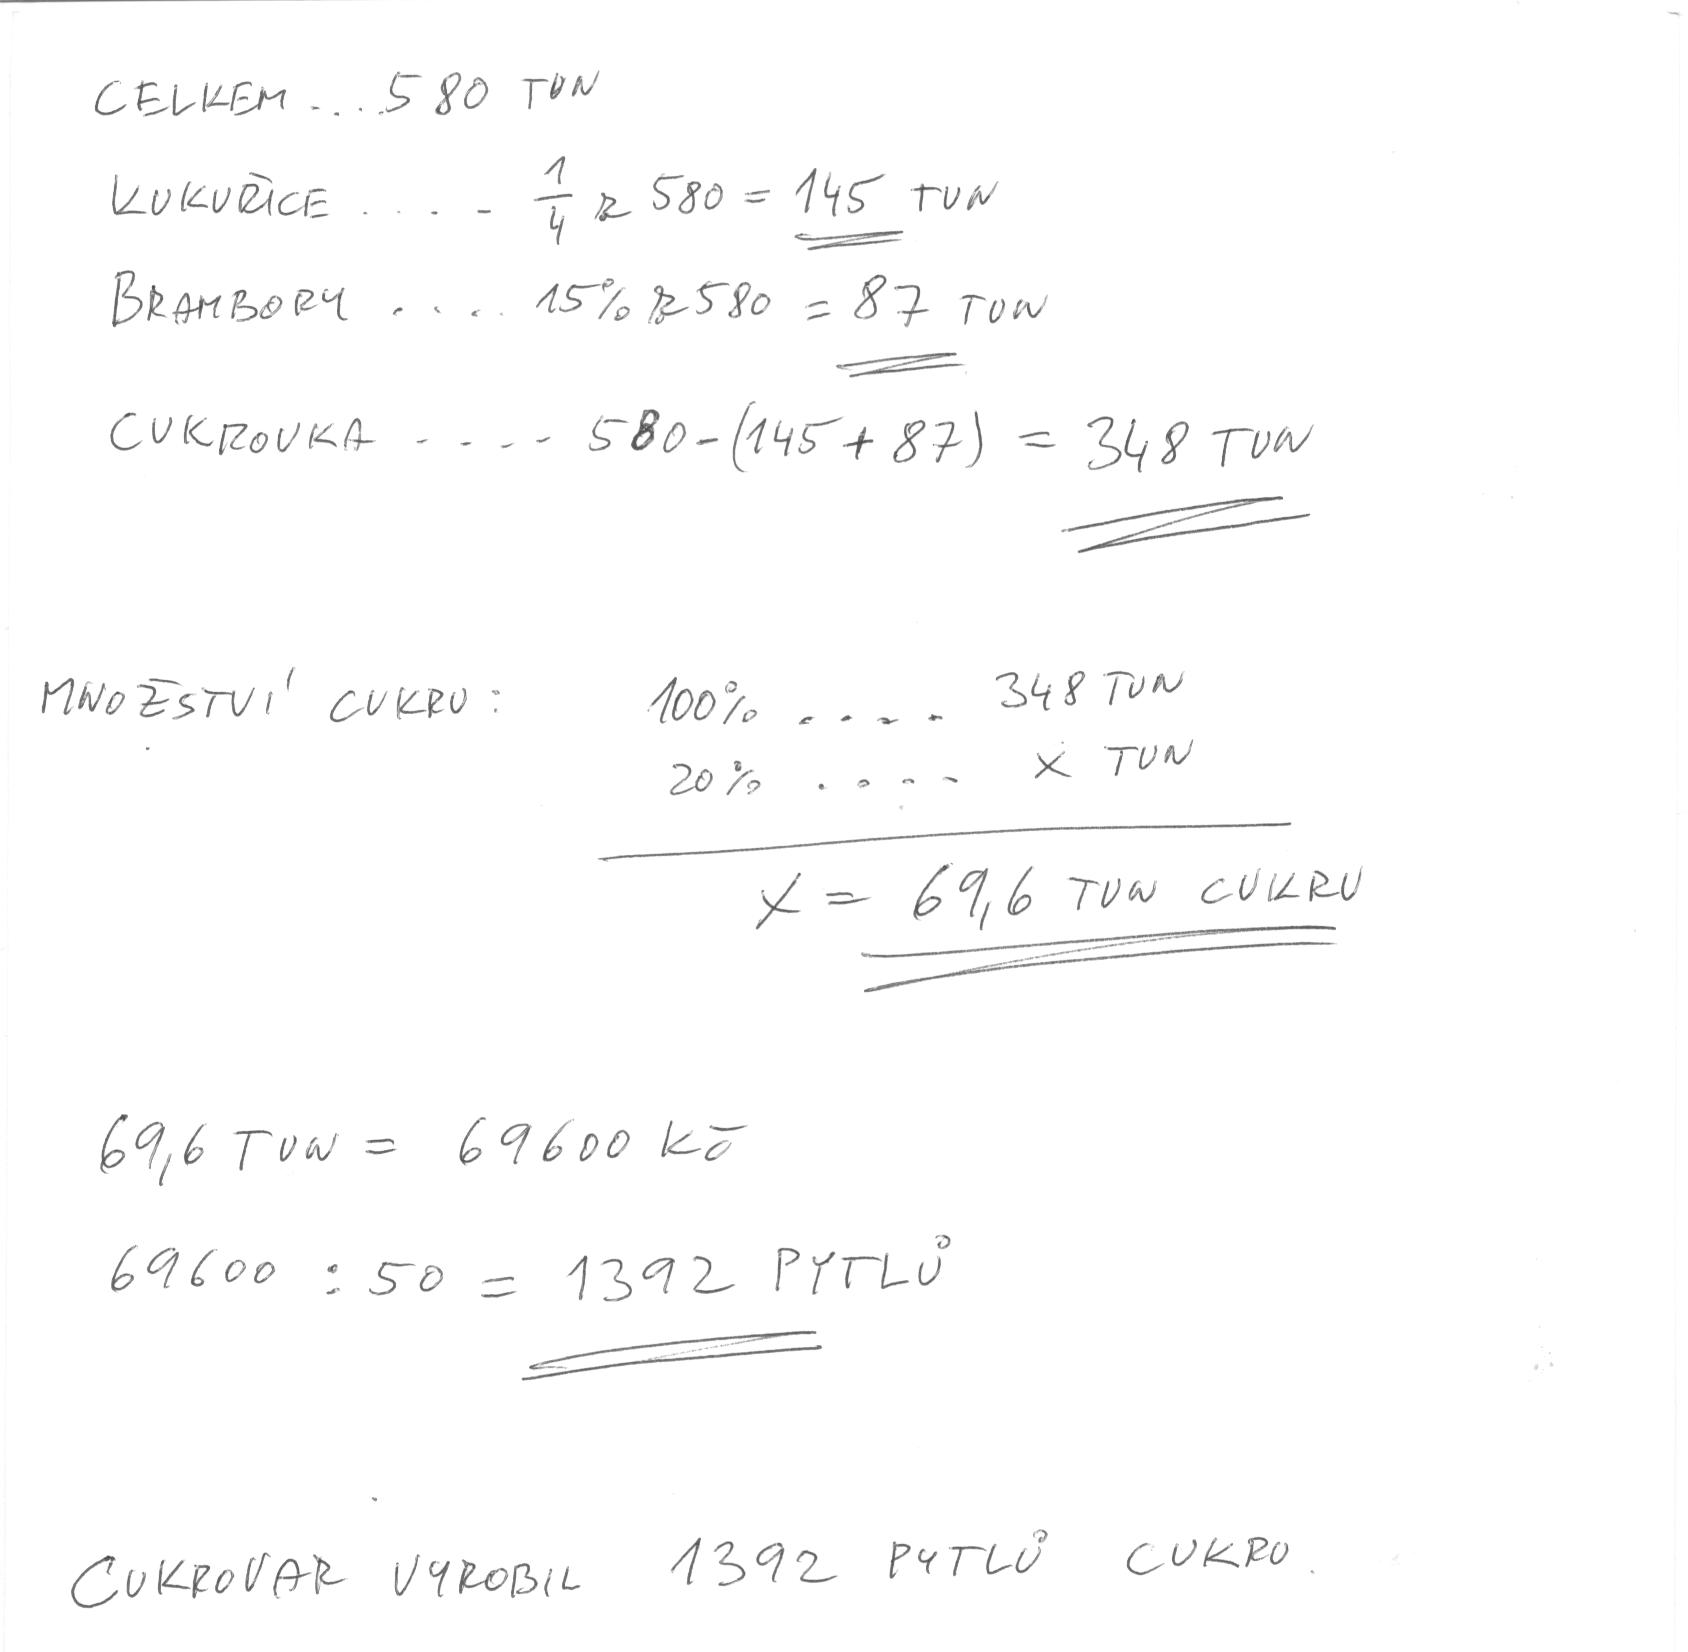 CELKEM .... 580 TUN
KUKUŘICE .... 1/4 z 580 = 145 TUN
BRAMBORY .... 15% z 580 = 87 TUN
CUKROVKA .... 580-(145 + 87) = 348 TUN
MNOŽSTVÍ CUKRU: 100% .... 348 TUN
20% .... X TUN
X = 69,6 TUN CUKRU
69,6 TUN = 69600 KG
69600 : 50 = 1392 PYTLŮ
CUKROVAR VYROBIL 1392 PYTLŮ CUKRU.